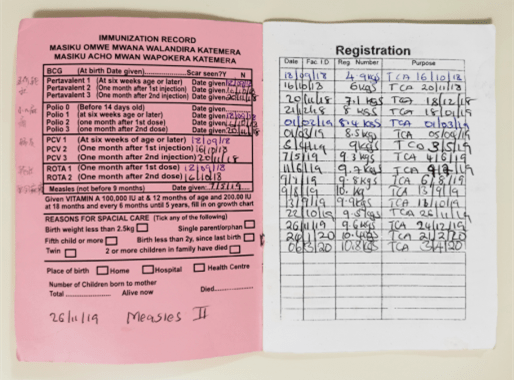 IMMUNIZATION RECORD
MASIKU OMWE MWANA WALANDIRA KATEMERA
MASIKU ACHO MWAN WAPOKERA KATEMERA
BCG (At birth Date given) Scar seen?Y N
Pertavalent 1 (At six weeks age or later) Date given
Pertavalent 2 (One month after 1st injection) Date given
Pertavalent 3 (One month after 2nd injection) Date given 20/11/18
Polio 0 (Before 14 days old) Date given
Polio 1 (at six weeks age or later) Date given
Polio 2 (one month after 1st dose) Date given
Polio 3 (one month after 2nd dose) Date given
PCV 1 (At six weeks of age or later) 18/09/18
PCV 2 (One month after 1st injection) 16/10/18
PCV 3 (One month after 2nd injection) 20/11/18
ROTA 1 (one month after 1st dose) 18/09/18
ROTA 2 (one month after 2nd dose) 16/10/18
Measles (not before 9 months) Date given: 7/5/19
Given VITAMIN A 100,000 IU at & 12 months of age and 200,00 IU
at 18 months and every 6 months until 5 years, fill in on growth chart
REASONS FOR SPACIAL CARE (Tick any of the following)
Birth weight less than 2.5kg Single parent/orphan
Fifth child or more Birth less than 2y, since last birth
Twin 2 or more children in family have died
Place of birth Home Hospital Health Centre
Number of Children born to mother
Total Alive now Died
26/11/19 Measles II
Registration
Date Fac ID Reg. Number Purpose
18/09/18 4.9kgs TCA 16/10/18
16/10/18 6kgs TCA 20/11/18
20/11/18 7.1kgs TCA 18/12/18
21/12/18 8kgs TCA 18/01/19
01/02/19 8.4kgs TCA 01/03/19
01/03/19 8.5kgs TCA 05/04/19
5/4/19 9kgs TCA 3/5/19
7/5/19 9.3kgs TCA 4/6/19
11/6/19 9.7kgs TCA
9.8kgs TCA 6/8/19
10.1kg TCA 13/9/19
13/9/19 9.9kgs TCA 18/10/19
22/10/19 9.5kgs TCA 26/11/19
26/11/19 9.6kgs TCA 24/12/19
24/1/20 10.4kgs TCA 21/2/20
06/3/20 10.8kgs TCA 3/4/20